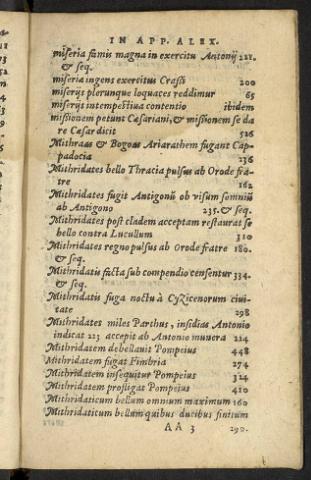 IN APP. ALEX.
miseria famis magna in exercitu Antonij 221.
& seq.
miseria ingens exercitus Crassi 200
miserijs plerunque loquaces reddimur 65
miserijs intempestiua contentio ibidem
missionem petunt Cæsariani, & missionem se da
re Cæsar dicit 526
Mithraas & Bogoas Ariarathem fugant Cap-
padocia 236
Mithridates bello Thracia pulsus ab Orode fra-
tre 162
Mithridates fugit Antigonū ob visum somniū
ab Antigono 235. & seq.
Mithridates post cladem acceptam restaurat se
bello contra Lucullum 310
Mithridates regno pulsus ab Orode fratre 180.
& seq.
Mithridatis facta sub compendio censentur 334.
& seq.
Mithridatis fuga noctu à Cyzicenorum ciui-
tate 298
Mithridates miles Parthus, insidias Antonio
indicat 223 accepit ab Antonio munera 224
Mithridatem debellauit Pompeius 448
Mithridatem fugat Fimbria 274
Mithridatem insequitur Pompeius 324
Mithridatem profligat Pompeius 410
Mithridaticum bellum omnium maximum 160
Mithridaticum bellum quibus ducibus finitum
AA 3 290.